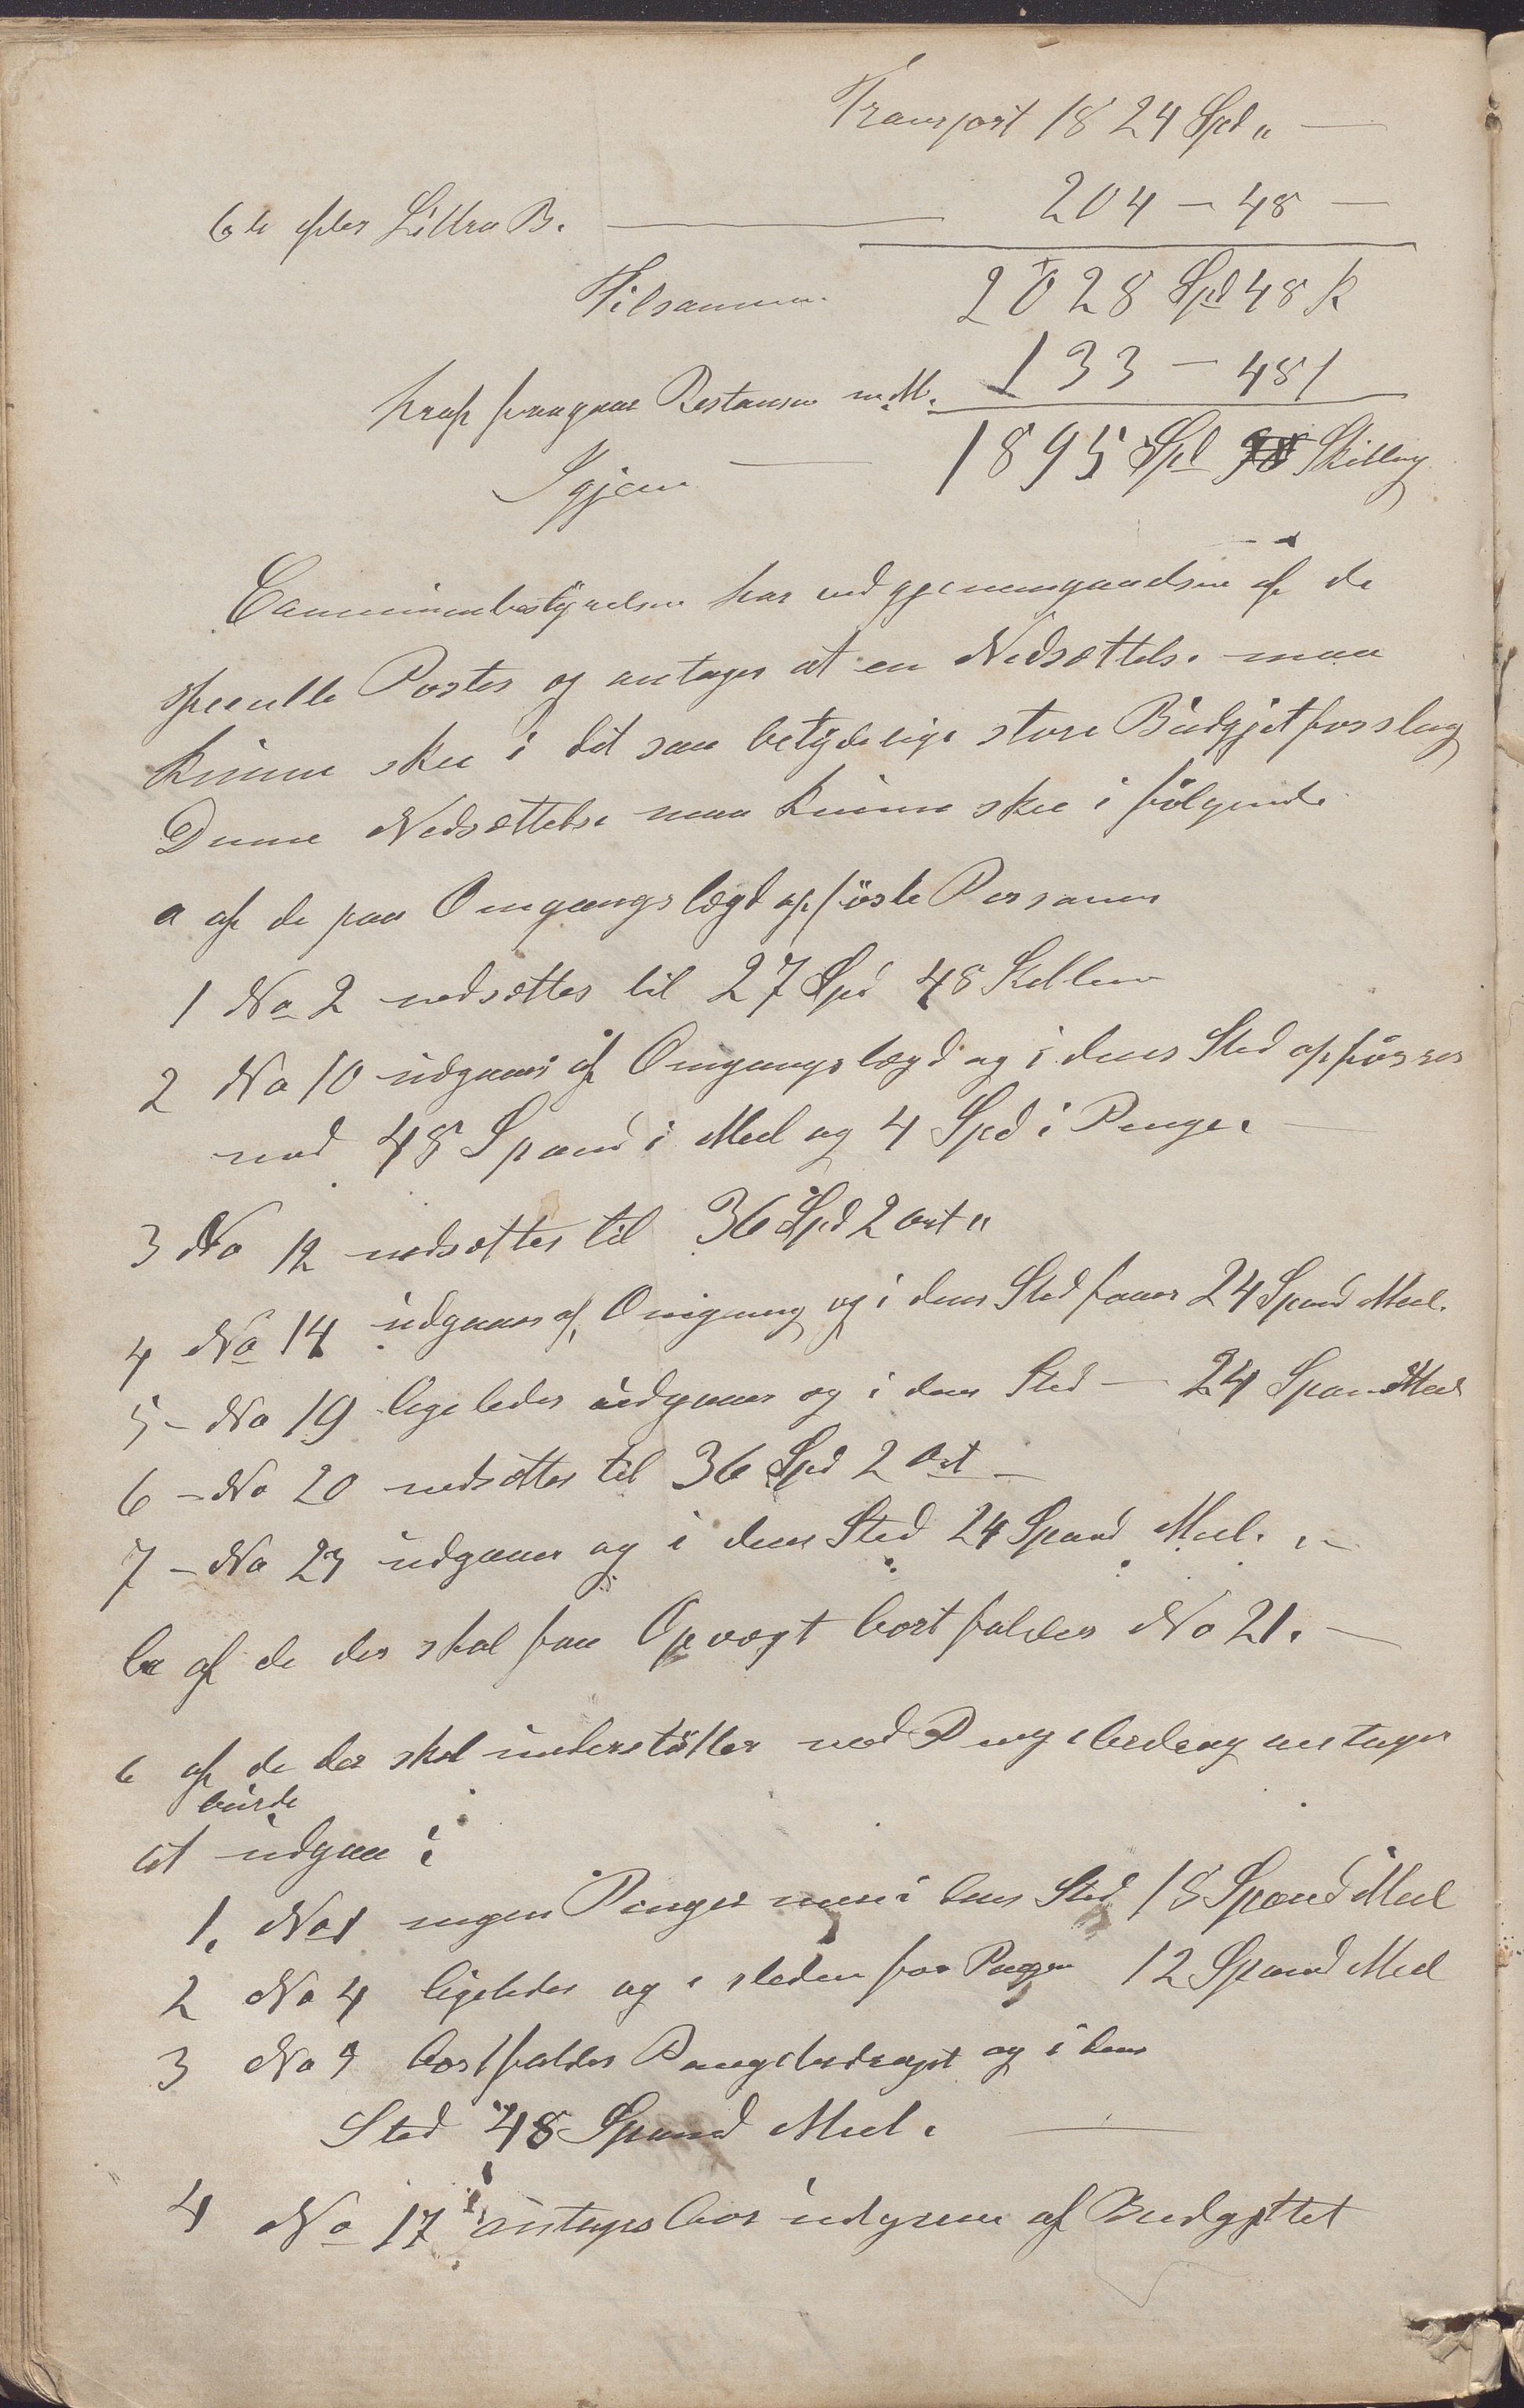 Transport 1824 Spd "
6te efter Littra B. 204 - 48 -
Tilsammen 2028 Spd 48 k
hvoraf fraagaar Restanser m. M. 133 - 48
Igjen 1895 Spd Skilling
Communebestyrelsen har ved gjennemgaaelsen af de
specielle Poster og antager at en Nedsættelse maa
kunne skee i det saa betydelige store Budgjetforslag
Denne Nedsættelse maa kunne skee i følgende
a af de paa Omgangslægd opførte Personer
1 No 2 nedsættes til 27 Spd 48 Skilling
2 No 10 udgaaer af Omgangslægd og i dens Sted opføres
med 48 Spand i Meel og 4 Spd i Penge.
3 No 12 nedsættes til 36 Spd 2 ort "
4 No 14 udgaaer af Omgang og i dens Sted faaer 24 Spand Meel.
5 - No 19 ligeledes udgaaer og i dens Sted - 24 Spand Meel
6 - No 20 nedsættes til 36 Spd 2 Ort -
7 - No 23 udgaaer og i dens Sted 24 Spand Meel. -
b af de der skal faa Opvægt bortfalder No 21. -
c af de der skal understøttes med Pengebedrag antages
burde
at udgaa:
1. No 1 ingen Penger men i dens Sted 18 Spand Meel
2 No 4 ligeledes og i steden for Penger 12 Spand Meel
3 No 9 bortfalder Pengebedraget og i dens
Sted 48 Spand Meel.
4 No 17 antages bør udgaae af Budgjettet